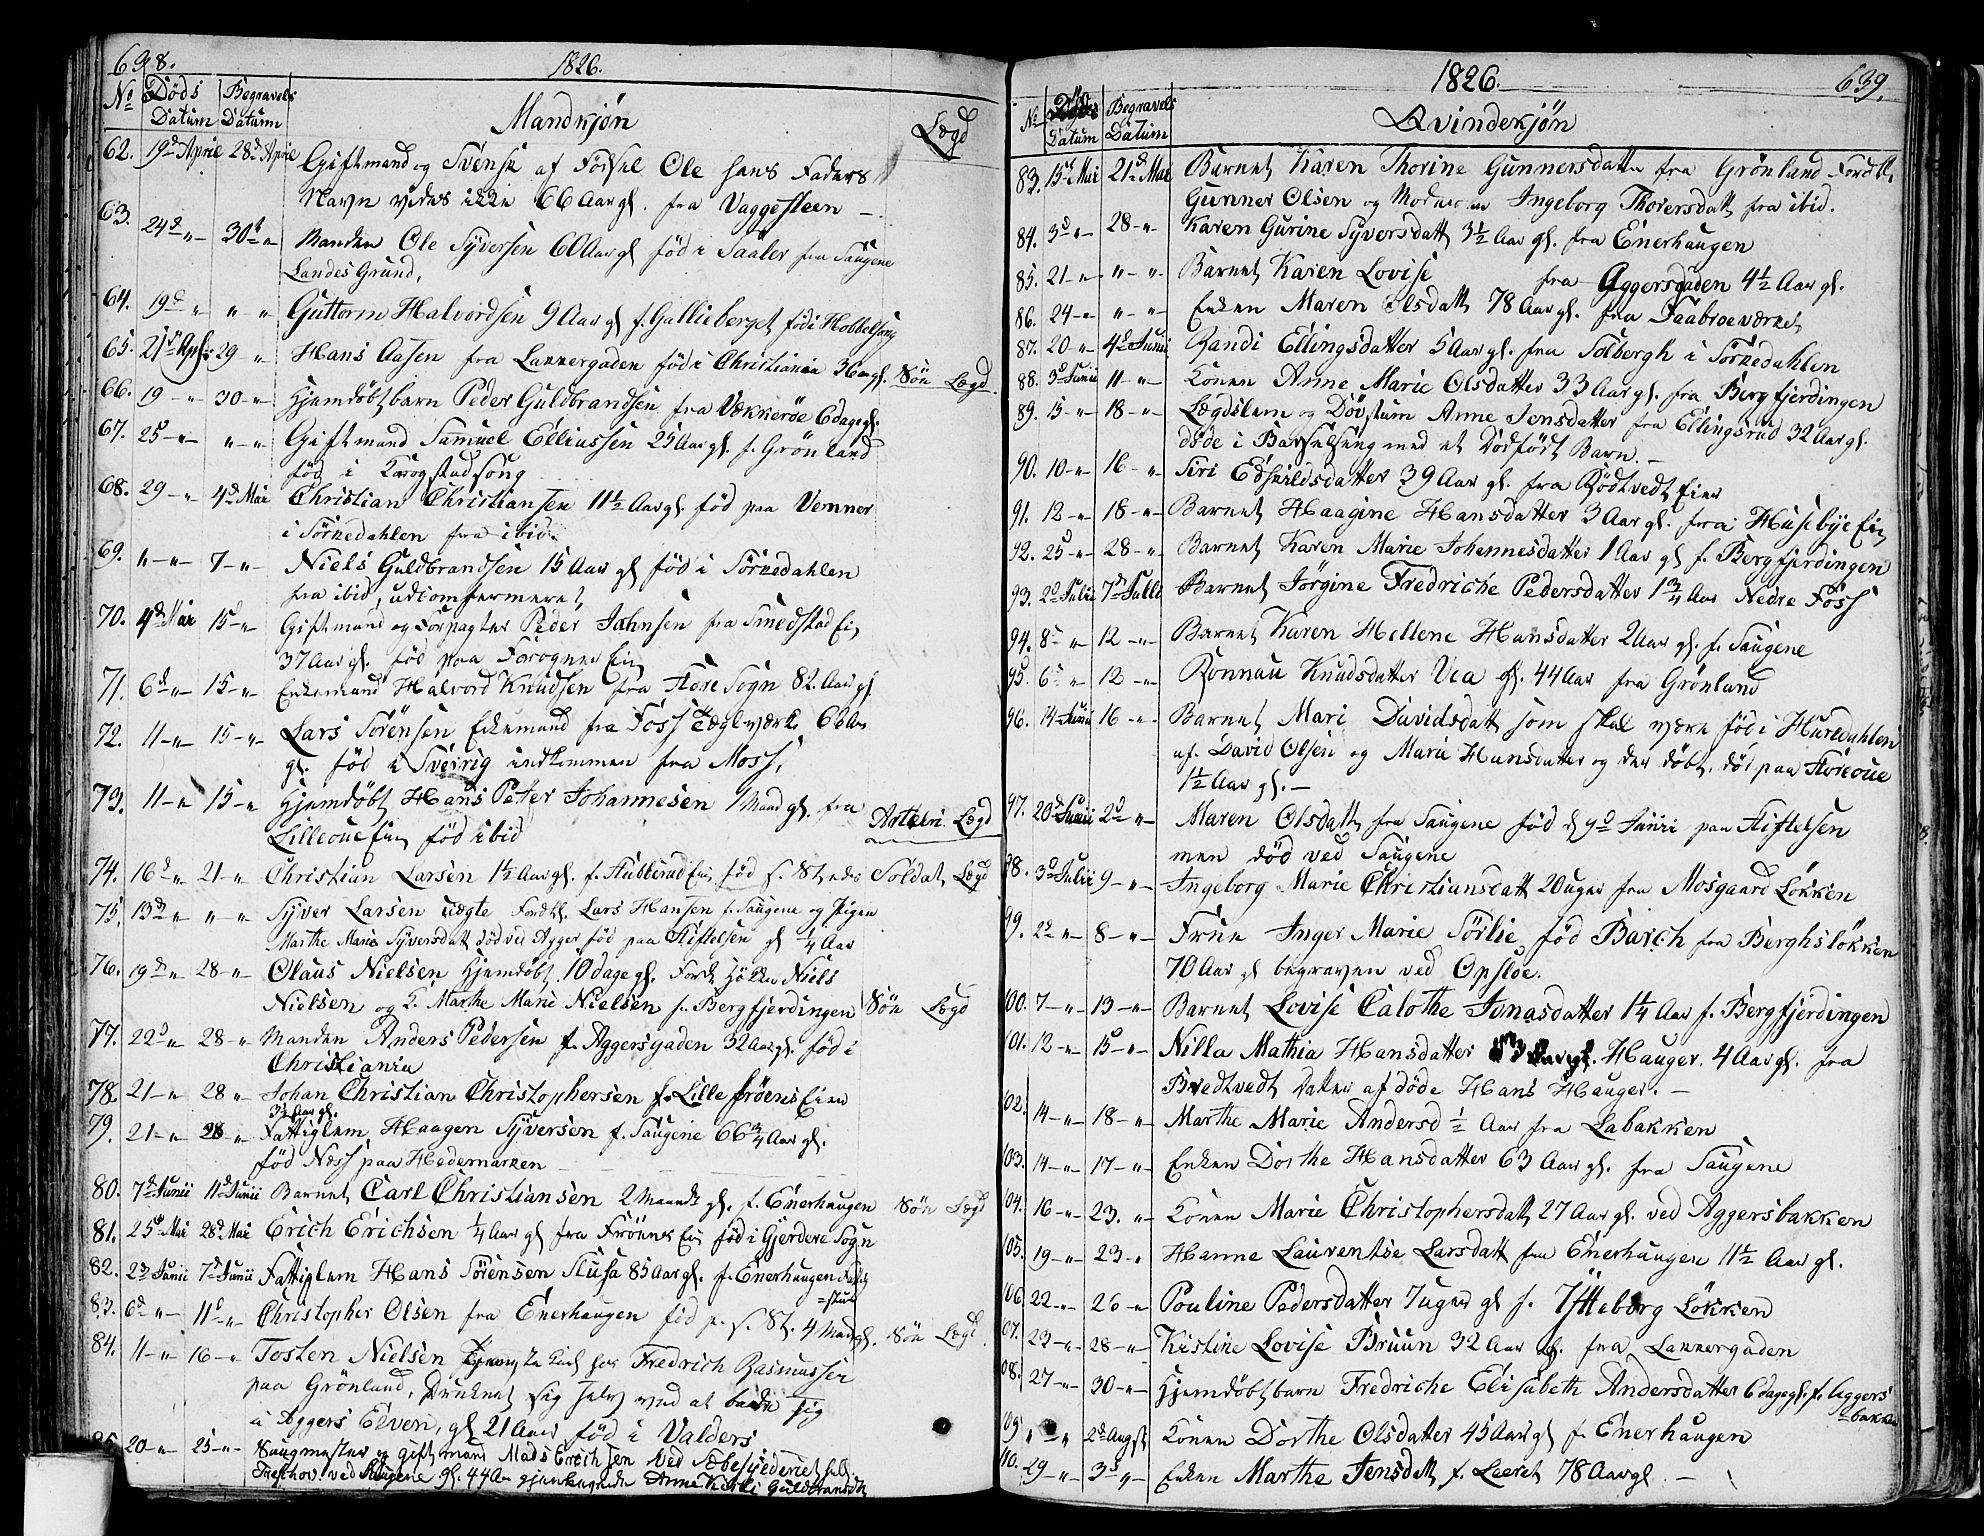 638.
1826.
No Døds Datum Begravels Datum
Mandkjøn
Lægd
62. 19d April 28d April Giftmand og Svensk af Fødsel Ole hans Faders
Navn vides ikke 66 Aar gl. fra Vaggesteen
63. 24d " 30t " Manden Ole Syversen 60 Aar gl fød i Saaler fra Saugene
Landes Grund,
64. 19d " " " Guttorm Halvordsen 9 Aar gl f. Gallieberget fød i Hobbelsogn
65. 21d April 29 " Hans Aasen fra Lakkergaden fød i Christiania 36 Aar gl. Søn Lægd
66. 19 " 30 " Hjemdøbt barn Peder Guldbrandsen fra Vækkerøe 6 dage gl.
67. 25 " " " Giftmand Samuel Elliussen 25 Aar gl. f. Grønland
fød i Krogstadsong
68. 29 " 4d Mai Christian Christiansen 11½ Aar gl. fød paa Vemner
i Sørkedahlen fra ibid.
69. " " 7 " Niels Guldbrandsen 15 Aar gl fød i Sørkedahlen
fra ibid, udconfermeret
70. 4d Mai 15d " Giftmand og Forpagter Peder Jahnsen fra Smedstad Ei
37 Aar gl. fød paa Forogner Ei
71. 6d " 15 " Enkemand Halvord Knudsen fra Flore Sogn 82. Aar gl
72. 11 " 15 " Lars Sørensen Enkemand fra Foss Teglværk 66 Aar
gl. fød i Sverrig indkommen fra Moss,
73. 11 " 15 " Hjemdøbt Hans Petter Johannesen 1 Maand gl. fra Artleri Lægd
Lilleoue Ei fød ibid
74. 16d " 21 " Christian Larsen 1½ Aar gl. f. Stubberud Ei fød s. Steds Soldat Lægd
75. 13d " " " Syver Larsen uægte Fordl. Lars Hansen f. Saugene og Pigen
Marthe Marie Syversdatt død ved Agger fød paa Stiftelsen gl ¼ Aar
76. 19d " 28 " Olaus Nielsen Hjemdøbt. 10 dage gl. Niels
Nielsen og K. Marthe Marie Nielsen f. Bergfjerdingen Søn Lægd
77. 22d " 28 " Manden Anders Pedersen f. Aggersgaden 32 Aar gl. fød i
Christiania
78. 21 " 28 " Johan Christian Christophersen f. Lille Frøens Eien
3½ Aar gl.
79. 21 " 28 " Fattiglem Haagen Syversen f. Saugene 66¾ Aar gl.
fød Næss paa Hedemarken
80. 7d Junii 11d Junii Barnet Carl Christiansen 2 Maand gl. f. Enerhaugen Søn Lægd
81. 25d Mai 28d Mai Erich Erichsen ¼ Aar gl fra Frønes Ei fød i Gjerdere Sogn
82. 23 Junii 7d Junii Fattiglem Hans Sørensen Slusa 85 Aar gl. f. Enerhaugen
83. 6d " 11d " Christopher Olsen fra Enerhaugen fød p. s. St. 4 Mad gl. Søn Lægd.
84. 11 " 16 " Tosten Nielsen hos Fredrich Rasmussen
paa Grønland, Druknet sig selv ved at bade sig
i Aggers Elven, gl 21 Aar fød i Valders
85. 20 " 25 " Saugmester og gift mand Mads Erichsen ved Sæbesyderiet
ved Saugene gl. 44 Aar gjenlevende Anne Guldbrandsdt
1826.
639.
No Døds Datum Begravels Datum
Qvindekjøn
83. 15d Mai 21d Mai Barnet Karen Thorine Gunnersdatter fra Grønland Fordl.
Gunner Olsen og Moderen Ingeborg Thorersdatt fra ibid.
84. 3d " 28 " Karen Gurine Syversdatt 3½ Aar gl. fra Enerhaugen
85. 21 " " " Barnet Karen Lovise fra Aggersgaden 4½ Aar gl.
86. 24 " " " Enken Maren Olsdatt 78 Aar gl. fra Faabroeværket
87. 20 " 4d Junii Randi Ellingsdatter 5 Aar gl. fra Solbergh i Sørkedahlen
88. 3d Junii 11 " Konen Anne Marie Olsdatter 33 Aar gl. fra Bergfjerdingen
89. 15 " 18 " Lægdslem og Døvstum Anne Jensdatter fra Ellingsrud 32 Aar gl.
døde i Barselseng med et Dødfødt Barn.
90. 10 " 16 " Siri Edsvildsdatter 39 Aar gl. fra Rødtvedt Eier
91. 12 " 18 " Barnet Haagine Hansdatter 3 Aar gl. fra Husebye Ei
92. 25d " 28 " Barnet Karen Marie Johannesdatter 1 Aar gl f. Bergfjerdingen
93. 2d Julii 7d Julii Barnet Jørgine Fredriche Pedersdatter 1¾ Aar Nedre Foss
94. 8 " 12 " Barnet Karen Hellene Hansdatter 2 Aar gl. f. Saugene
95. 6 " 12 " Ronnau Knudsdatter Vea gl. 44 Aar fra Grønland
96. 14 Junii 16 " Barnet Mari Davidsdatt som skal være fød i Hurdahlen
af David Olsen og Marie Hansdatter og der døbt, død paa Storeoue
1½ Aar gl.
97. 20d Junii 2d " Maren Olsdatt fra Saugene fød d 9d Junii paa Stiftelsen
men død ved Saugene
98. 3d Julii 9 " Ingeborg Marie Christiansdatt 20 uger fra Mosgaard Løkken
99. 22 " 8 " Frue Inger Marie Sørlie fød Barch fra Berghsløkken
70 Aar gl begraven ved Opsloe.
100. 7 " 13 " Barnet Lovise Calothe Jonasdatter 1¼ Aar f. Bergfjerdingen
101. 12 " 15d " Nilla Mathia Hansdatter Hauger. 4 Aar gl. fra
Bredtvedt Datter af døde Hans Hauger.
102. 14 " 18 " Marthe Marie Andersd ½ Aar fra Labakken
103. 14 " 17 " Enken Dorthe Hansdatter 63 Aar gl. fra Saugene
104. 16 " 23. " Konen Marie Christophersdatt 27 Aar gl. ved Aggersbakken
105. 19 " 23 " Hanne Laurentse Larsdatt fra Enerhaugen 11½ Aar gl.
106. 22 " 26 " Pouline Pedersdatter 7 uger gl f. Ytteborg Løkken
107. 23 " 28 " Kistine Lovise Bruun 32 Aar gl. fra Lakkergaden
108. 27 " 30 " Hjemdøbt barn Fredriche Elisabeth Andersdatter 6 dage gl. f. Aggers
=bakken
109. " " 2d Augst Konen Dorthe Olsdatter 45 Aar gl f. Enerhaugen
110. 29 " 3d " Enken Marthe Jensdatt f. Leeret 78 Aar gl.